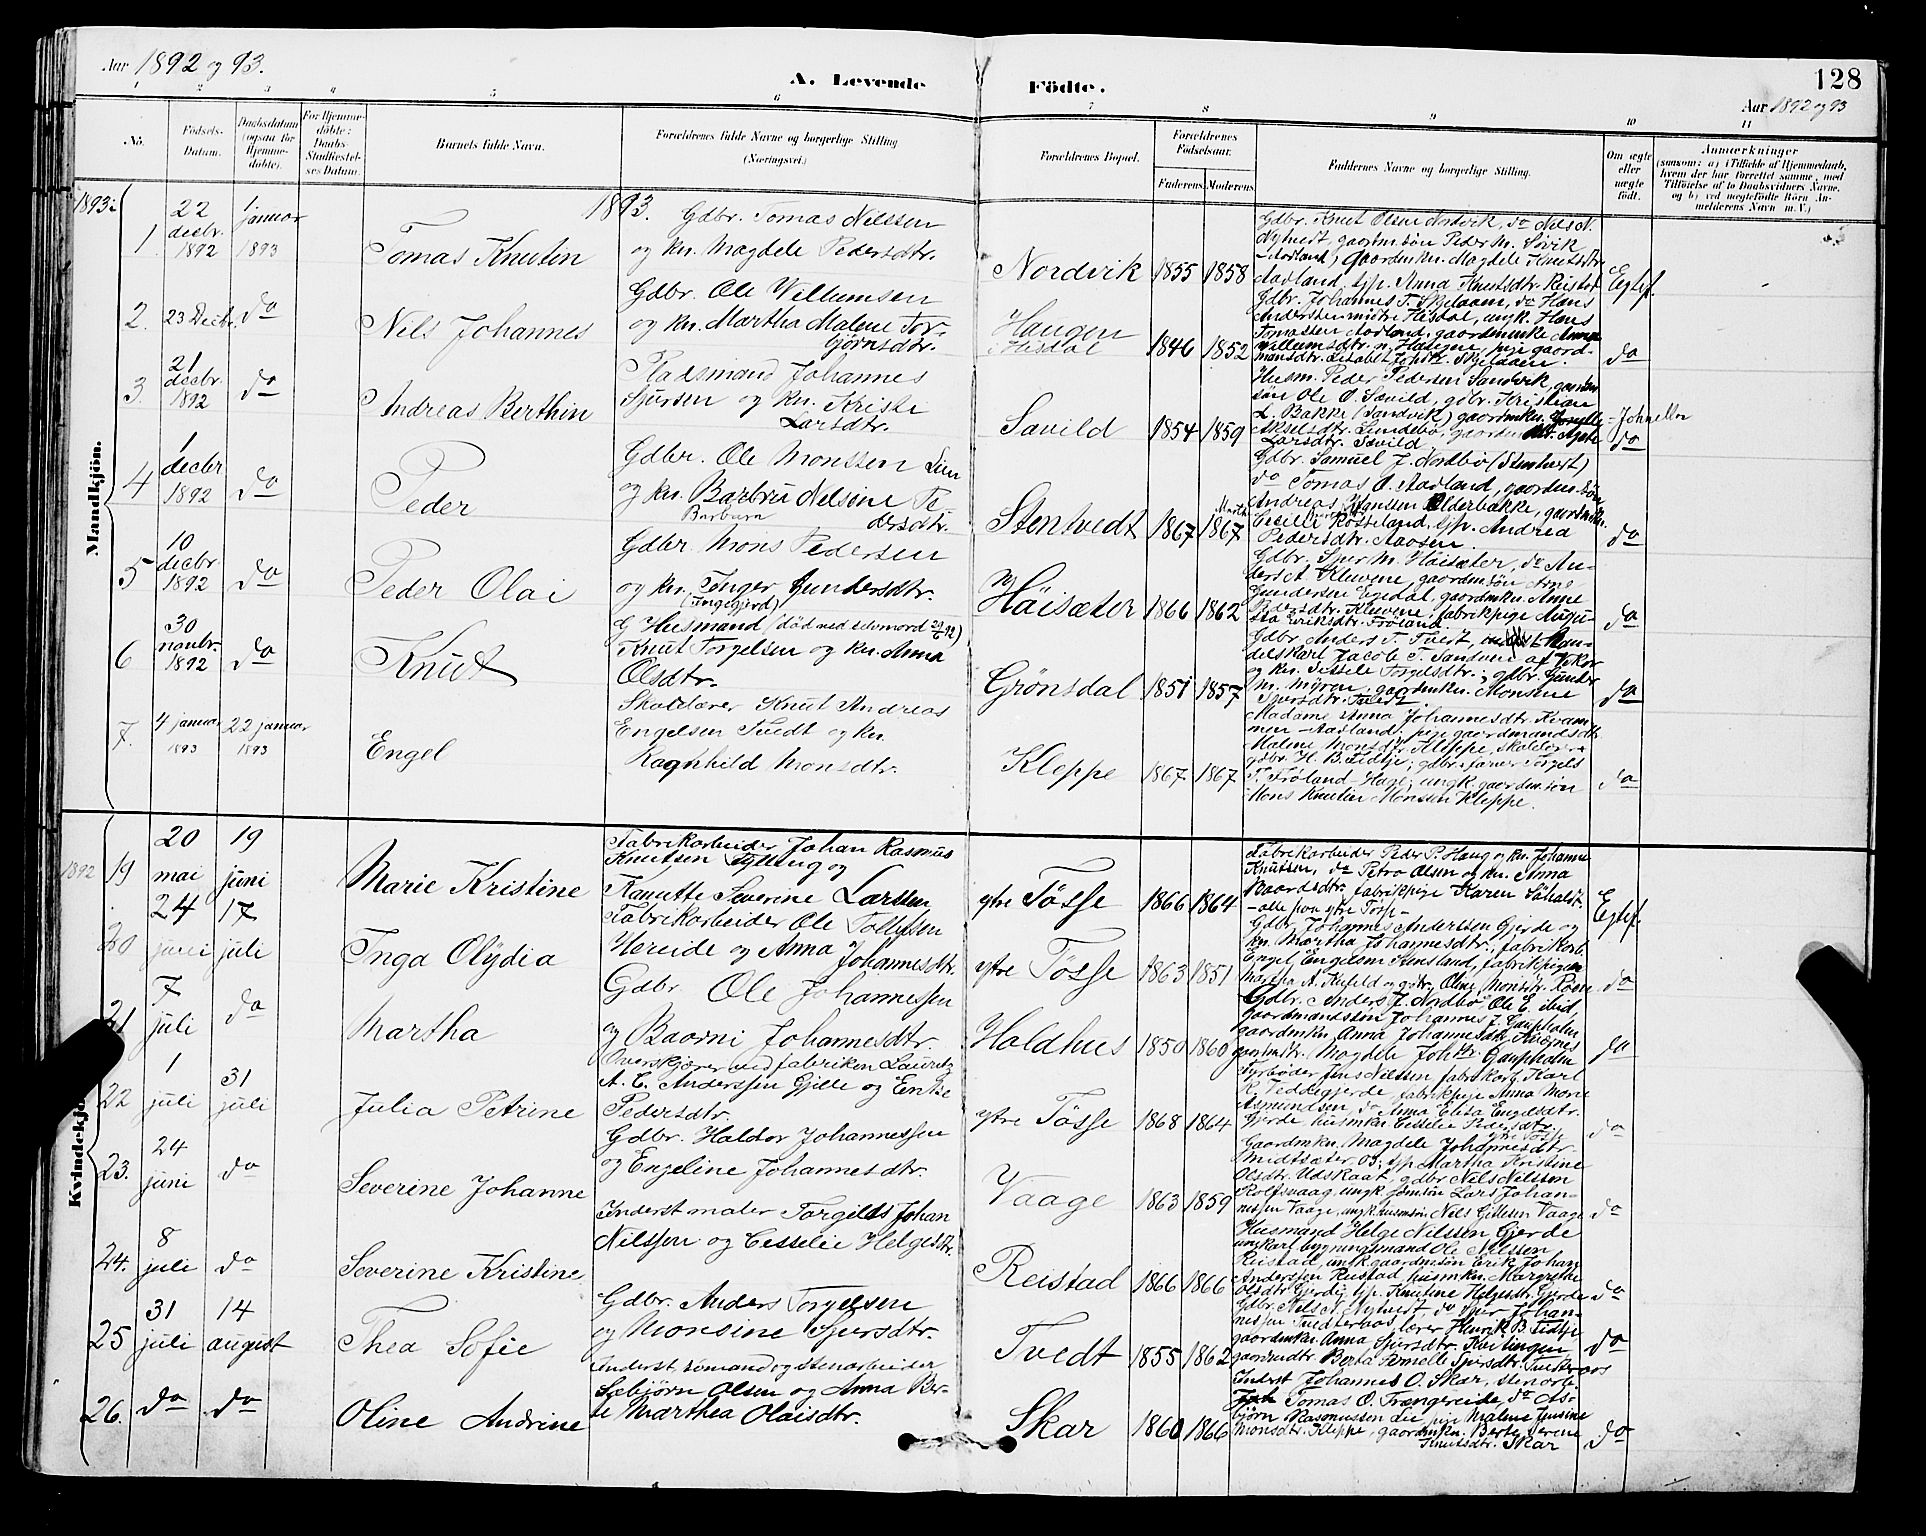 Aar 1892 og 93.
A. Levende Fødte.
128
Aar 1892 og 93
1 2 3 4 5 6 7 8 9 10 11
No.
Fødsels-Datum.
Daabsdatum (ogsaa for Hjemmedøbte).
For Hjemmedøbte: Daabs-Stadfæstelses Datum.
Barnets fulde Navn.
Forældrenes fulde Navne og borgerlige Stilling (Næringsvei.)
Forældrenes Bopæl.
Forældrenes Fødselsaar.
Faderens. Moderens.
Faddernes Navne og borgerlige Stilling.
Om ægte eller uægte født.
Anmærkninger
(saasom: a) i Tilfælde af Hjemmedaab,
hvem der har forrettet samme, med
Tilføielse af to Daabsvidners Navne.
og b) ved uægtefødte Børn An-
melderens Navn m. V.)
Mandkjøn.
1893:
1893.
1. 22 decbr. 1892
1. januar 1893
Tomas Knutin
Gdbr. Tomas Nilssen
og kn. Magdele Pedersdtr.
Nordvik 1855 1858
Gdbr. Knut Olsen Nordvik, do Nils N.
Nytvedt, gaardm.søn Peder M. Søvik
Aadland, gaardmkn. Magdele Knutsdtr.
Aadland, t/p. Anna Knutsdtr. Reistad
Egtef.
2. 23 Decbr. do
Nils Johannes
Gdbr. Ole Villumsen
og kn. Martha Malene Tor-
bjørnsdtr.
Haugen i Hisdal 1846 1852
Gdbr. Johannes T. Skjelaaen, do Hans
Anderssen midtre Hisdal, ungk. Hans
Tomassen Aadland, gaardmenke Anna
Willumsdtr. n. Haugen, pige gaard-
mansdtr. Lisabet Johdtr. Skjelaaen.
do
3. 21 decbr. 1892 do
Andreas Berthin
Pladsmand Johannes
Sjursen og kn. Kristi
Larsdtr.
Savild 1854 1859
Husm. Peder Pedersen Sandvik, gaardm
søn Ole O. Savild, gdbr. Kristian
L. Bakke (Sandvik) gaardmkn.
Akselsdtr. Lundebø, gaardm
Larsdtr. Savild
do
4 1 decbr 1892 do
Peder
Gdbr. Ole Monssen Lien
og kn. Barbru Nelsine Pe-
Barbara dersdtr.
Stentvedt 1867 1867
Gdbr. Samuel J. Nordbø (Stentvedt)
do Tomas O. Aadland, gaardm. søn
Andreas Hansen Olderbakke, gaardmkn.
Cecilie Røsseland, t/p. Andrea
Pedersdtr. Aaosen.
do
5 10 decbr 1892 do
Peder Olai
Gdbr. Mons Pedersen
og kn. Inger Gundersdtr.
(Ingegjerd)
Høisæter 1866 1862
Gdbr. Sjur M. Høisæter, do An-
ders A. Kleivene, gaardm.søn Arne
Gundersen Egedal, gaardmkn. Anne
Pedersdtr. Kleivene, fabrikpige Augu-
sta Eriksdtr. Frøland.
do
6 30 novbr. 1892 do
Knut
G Husmand (død ved selvmord 29/6 92)
Knut Torgelsen og kn. Anna
Olsdtr.
Grønsdal 1851 1857
Gdbr. Anders T. Tvedt, Han-
delskarl Jacob T. Sandven af Vikør
og kn. Sissele Torgelsdtr.; gdbr. Gunder
M. Myren, gaardmkn. Monsine
Sjursdtr. Tvedt
do
7. 4 januar 1893
22 januar 1893
Engel
Skolelærer Knut Andreas
Engelsen Tvedt og kn.
Ragnhild Monsdtr.
Kleppe 1867 1867
Madame Anna Johannesdtr. Kvam-
men - Aadland, pige gaardmandsdtr.
Malene Monsdtr. Kleppe, skolelær-
gdbr. H. B. Tidtje; gdbr. sønner Torgels
T. Frøland - Hage; ungk. gaardm.søn
Mons Knutin Monsen Kleppe.
do
Kvindekjøn
1892
19 20 mai
19 juni
Marie Kristine
Fabrikarbeider Johan Rasmus
Knutsen Tyttug og
Kanutte Severine Larssen
ytre Tøsse 1866 1864
Fabrikarbeider Peder P. Haug og kn. Johanne
Knutsen, do Petra Olsen og kn. Anna
Baardsdtr. fabrikpige Karen
- alle paa ytre Tøsse -
Egtef.
20 24 juni
17 juli
Inga Olydia
Fabrikarbeider Ole Tollefsen
Hereide og Anna Johannesdtr.
ytre Tøsse 1863 1851
Gdbr. Johannes Anderssen Gjerde og
kn. Martha Johannesdtr., fabrikarb.
Engel Engelsen Stensland, fabrikpigen
Martha A. og gdtr. Oline Monsdtr. Roen
do
21 7 juli do
Martha
Gdbr. Ole Johannessen
og Baarni Johannesdtr.
Holdhus 1850 1860
Gdbr. Anders J. Nordbø Ole E. ibid,
gaardmandssøn Johannes J. Gaupholm
gaardmkn. Anna Johannesdtr.
gaardmdtr. Magdele Johdtr. Gaupholm
do
22 1 juli
31 juli
Julia Petrine
Overskjærer ved fabriken Lauritz
A. C. Anderssen Gjelle og Emilie
Pedersdtr.
ytre Tøsse 1868 1864
Fyrbøder Jens Nilssen, fabrikarb. Karl
K. Teddegjerde, fabrikpige Anna Marie
Asmundsen, do Anna Elisa Engelsdtr.
Gjerde, husmkn Cesselie Pedersdtr.
ytre Tøsse
do
23. 24 juni do
Severine Johanne
Gdbr. Haldor Johannessen
og Engeline Johannesdtr.
Vaage 1863 1859
Gaardmkn. Magdele Johannesdtr.
Midtsæter, Os; t/p Martha Kristine
Olsdtr. Udskaat, gdbr Nils Nilssen
Rolfsvaag, ungk. gdmsøn Lars Johan-
nessen Vaage, ungk. husmsøn Nils Gittesen Vaage
do
24. 8 juli do
Severine Kristine
Inderst maler Torgils Johan
Nilssen og Cesselie Helgesdtr.
Reistad 1866 1866
Husmand Helge Nilssen Gjerde
ungkarl bygningsmand Ole Nilssen
Reistad, ungk. gaardmsøn Erik Johan
Anderssen Reistad, husmkn. Margrethe
Olsdtr. Gjerde, t/p. Knutine Helgesdtr. Gjerde
do
25 31 juli
14 august
Thea Sofie
Gdbr. Anders Torgelsen
og Monsine Sjursdtr.
Tvedt 1855 1862
Gdbr. Nils N. Nytvedt do Sjur Johan-
nessen Tvedteraas, lærer Henrik B. Tidtje
gaardmkn. Anna Sjursdtr. Kvitingen
gaardmdtr. Berta Pernelle Sjursdtr. Tvedteraas
do
26. do do
Oline Andrine
Inderst sømand og stenarbeider
Sæbjørn Olsen og Anna Ber-
te Marthea Olaisdtr.
Skar 1860 1866
Inderst Johannes O. Skar, stenarb
Tomas O. Trængereide, do As-
bjørn Rasmussen Lie, pige Malene Jensine
Monsdtr. Kleppe, gaardmkn. Berte Serine
Knutsdtr. Skar
do